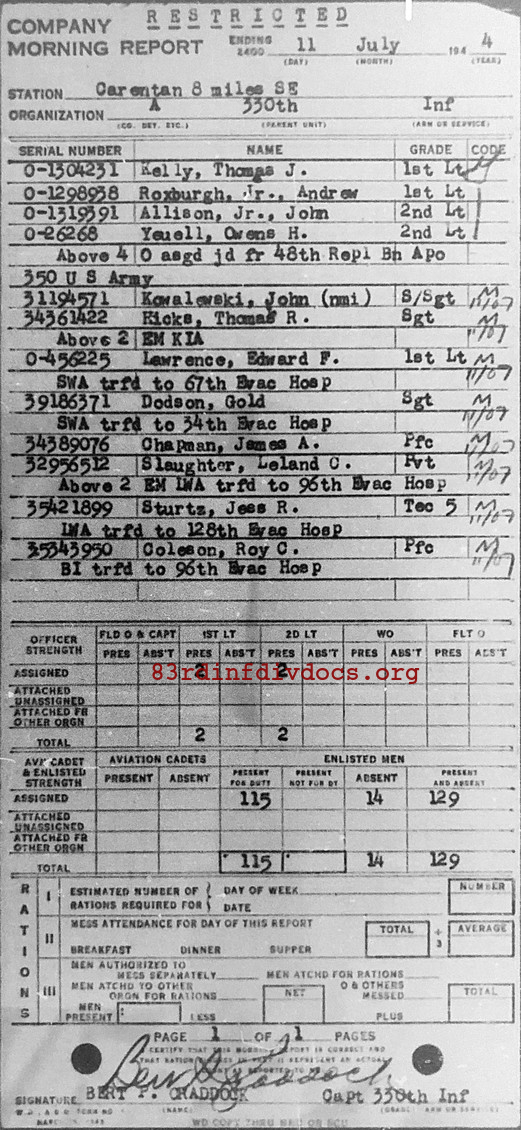 RESTRICTED
COMPANY
MORNING REPORT ENDING 2400 11 July 194 4
(DAY) (MONTH) (YEAR)
STATION Carentan 8 miles SE
ORGANIZATION A 330th Inf
(CO. DET. ETC.) (PARENT UNIT) (ARM OR SERVICE)
SERIAL NUMBER NAME GRADE CODE
0-1304231 Kelly, Thomas J. 1st Lt
0-1298938 Roxburgh, Jr., Andrew 1st Lt
0-1319391 Allison, Jr., John 2nd Lt
0-26268 Yeuell, Owens H. 2nd Lt
Above 4 O asgd jd fr 48th Repl Bn Apo
350 U S Army
31194571 Kowalewski, John (nmi) S/Sgt M 11/07
34361422 Hicks, Thomas R. Sgt M
Above 2 EM KIA 11/07
0-456225 Lawrence, Edward F. 1st Lt M
SWA trfd to 67th Evac Hosp 11/07
39186371 Dodson, Gold Sgt M
SWA trfd to 34th Evac Hosp 11/07
34389076 Chapman, James A. Pfc M 11/07
32956512 Slaughter, Leland C. Pvt M
Above 2 EM LWA trfd to 96th Evac Hosp 11/07
35421899 Sturtz, Jess R. Tec 5 M 11/07
LWA trfd to 128th Evac Hosp
35343950 Coleson, Roy C. Pfc M
BI trfd to 96th Evac Hosp 11/07
OFFICER STRENGTH FLD O & CAPT 1ST LT 2D LT WO FLT O
PRES ABS'T PRES ABS'T PRES ABS'T PRES ABS'T PRES ABS'T
ASSIGNED 2 2
83rdinfdivdocs.org
ATTACHED UNASSIGNED
ATTACHED FR OTHER ORGN
TOTAL 2 2
AVN CADET & ENLISTED STRENGTH AVIATION CADETS ENLISTED MEN
PRESENT ABSENT PRESENT FOR DUTY PRESENT NOT FOR DY ABSENT PRESENT AND ABSENT
ASSIGNED 115 14 129
ATTACHED UNASSIGNED
ATTACHED FR OTHER ORGN
TOTAL 115 14 129
RATIONS
I ESTIMATED NUMBER OF RATIONS REQUIRED FOR DAY OF WEEK DATE NUMBER
II MESS ATTENDANCE FOR DAY OF THIS REPORT TOTAL ÷ 3 AVERAGE
BREAKFAST DINNER SUPPER
III MEN AUTHORIZED TO MESS SEPARATELY MEN ATCHD FOR RATIONS
MEN ATCHD TO OTHER ORGN FOR RATIONS NET O & OTHERS MESSED TOTAL
MEN PRESENT LESS PLUS
PAGE 1 OF 1 PAGES
CERTIFY THAT THIS MORNING REPORT IS CORRECT AND
Bert P. Craddock
SIGNATURE BERT P. CRADDOCK Capt 330th Inf
(NAME) (GRADE ARM OR SERVICE)